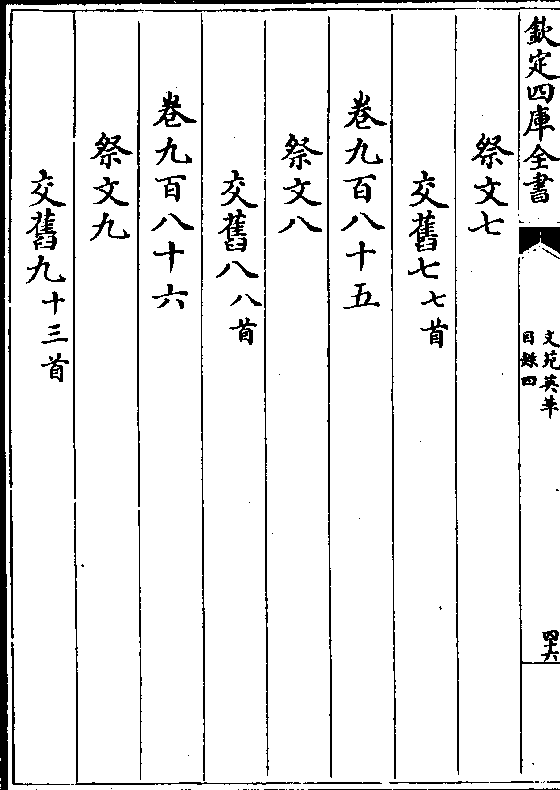 欽定四庫全書
文苑英華
目錄四
四十六
祭文七
交舊七七首
卷九百八十五
祭文八
交舊八八首
卷九百八十六
祭文九
交舊九十三首